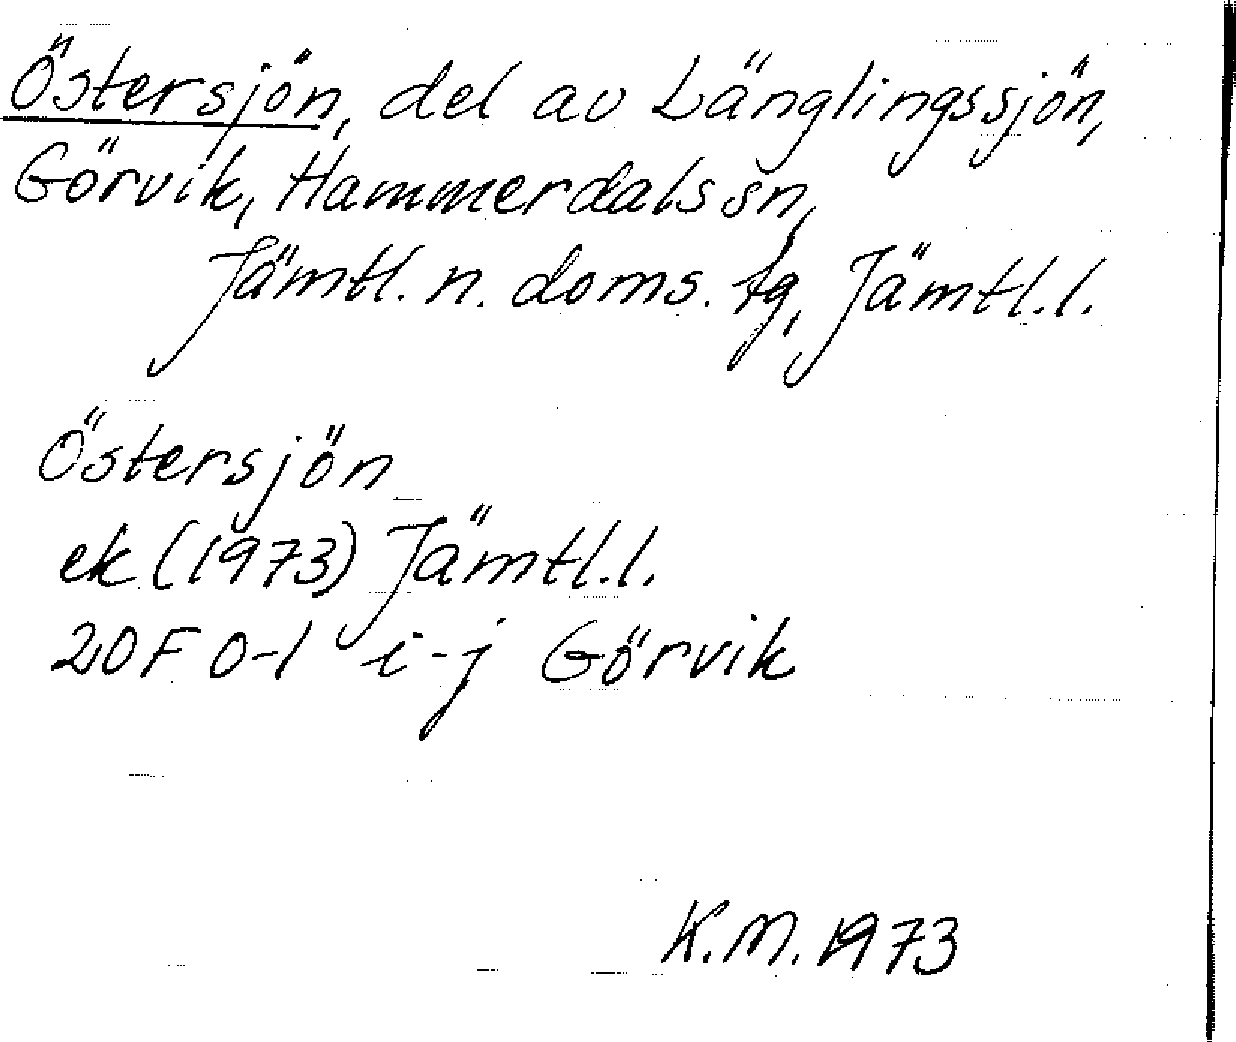 Östersjön, del av Länglingssjön,
Görvik, Hammerdals sn,
Jämtl. n. doms. tg, Jämtl. l.
Östersjön
ek (1973) Jämtl. l.
20F 0-1 i-j Görvik
K.M. 1973